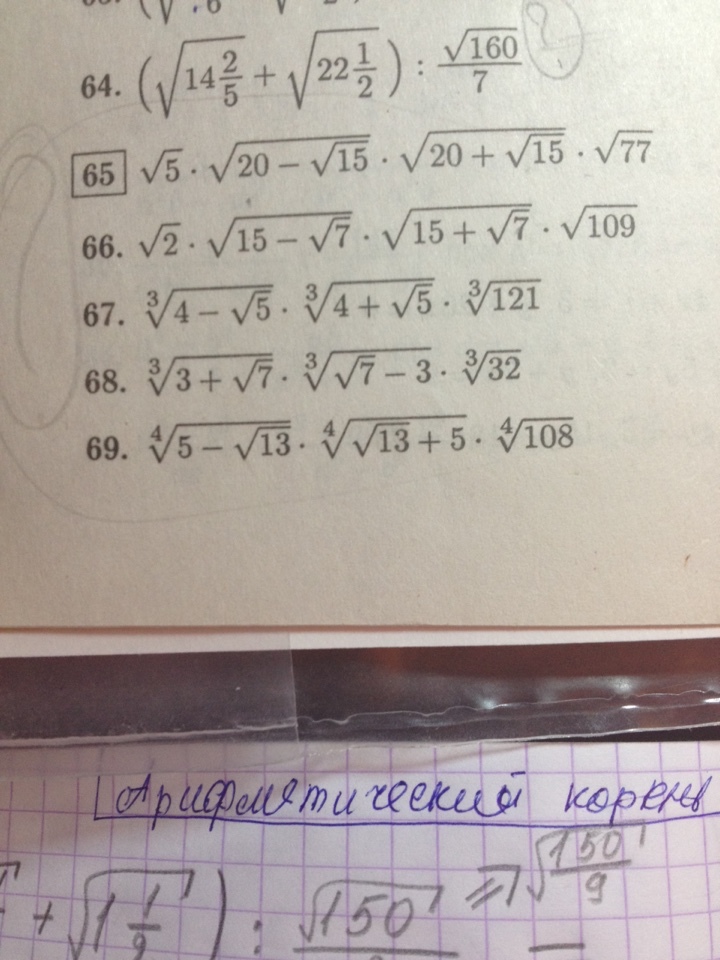 64. (√(14 2/5) + √(22 1/2)) : √160/7
65 √5 · √(20 − √15) · √(20 + √15) · √77
66. √2 · √(15 − √7) · √(15 + √7) · √109
67. ∛(4 − √5) · ∛(4 + √5) · ∛121
68. ∛(3 + √7) · ∛(√7 − 3) · ∛32
69. ∜(5 − √13) · ∜(√13 + 5) · ∜108
Арифметический корень
+ √(1 1/9)) : √150 √(150/9)